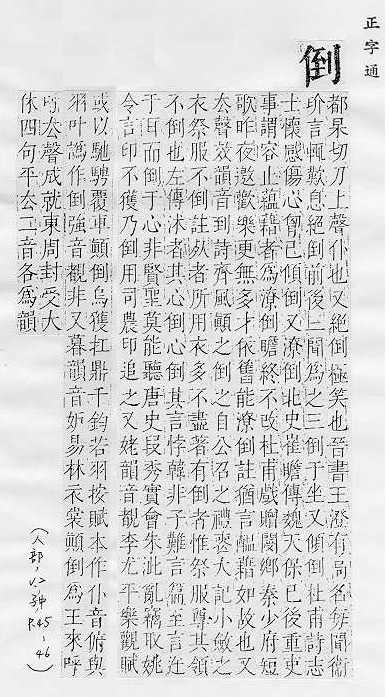 正字通
倒
都杲切刀上聲仆也又絕倒極笑也晉書王澄有高名每聞衛
玠言輒歎息絕倒前後三聞為之三倒于坐又傾倒杜甫詩志
士懷感傷心胷已傾倒又潦倒北史崔瞻傳魏天保已後重吏
事謂容止蘊藉者為潦倒瞻終不改杜甫戲贈閿鄉秦少府短
歌昨夜邀歡樂更無多才依舊能潦倒註猶言醞藉如故也又
去聲效韻音到詩齊風顛之倒之自公召之禮䘮大記小斂之
衣祭服不倒註从者所用衣多不盡著有倒者惟祭服尊其領
不倒也左傳沐者其心倒心倒其言悖韓非子難言篇至言迕
于耳而倒于心非賢聖莫能聽唐史段秀實會朱泚亂竊取姚
令言印不獲乃倒用司農印追之又姥韻音覩李尤平樂觀賦
或以馳騁覆車顛倒烏獲扛鼎千鈞若羽按賦本作仆音俯與
羽叶譌作倒強音覩非又暮韻音妒易林衣裳顛倒為王來呼
呼去聲成就東周封受大
休四句平去二音各為韻
(人部, P.45-46)